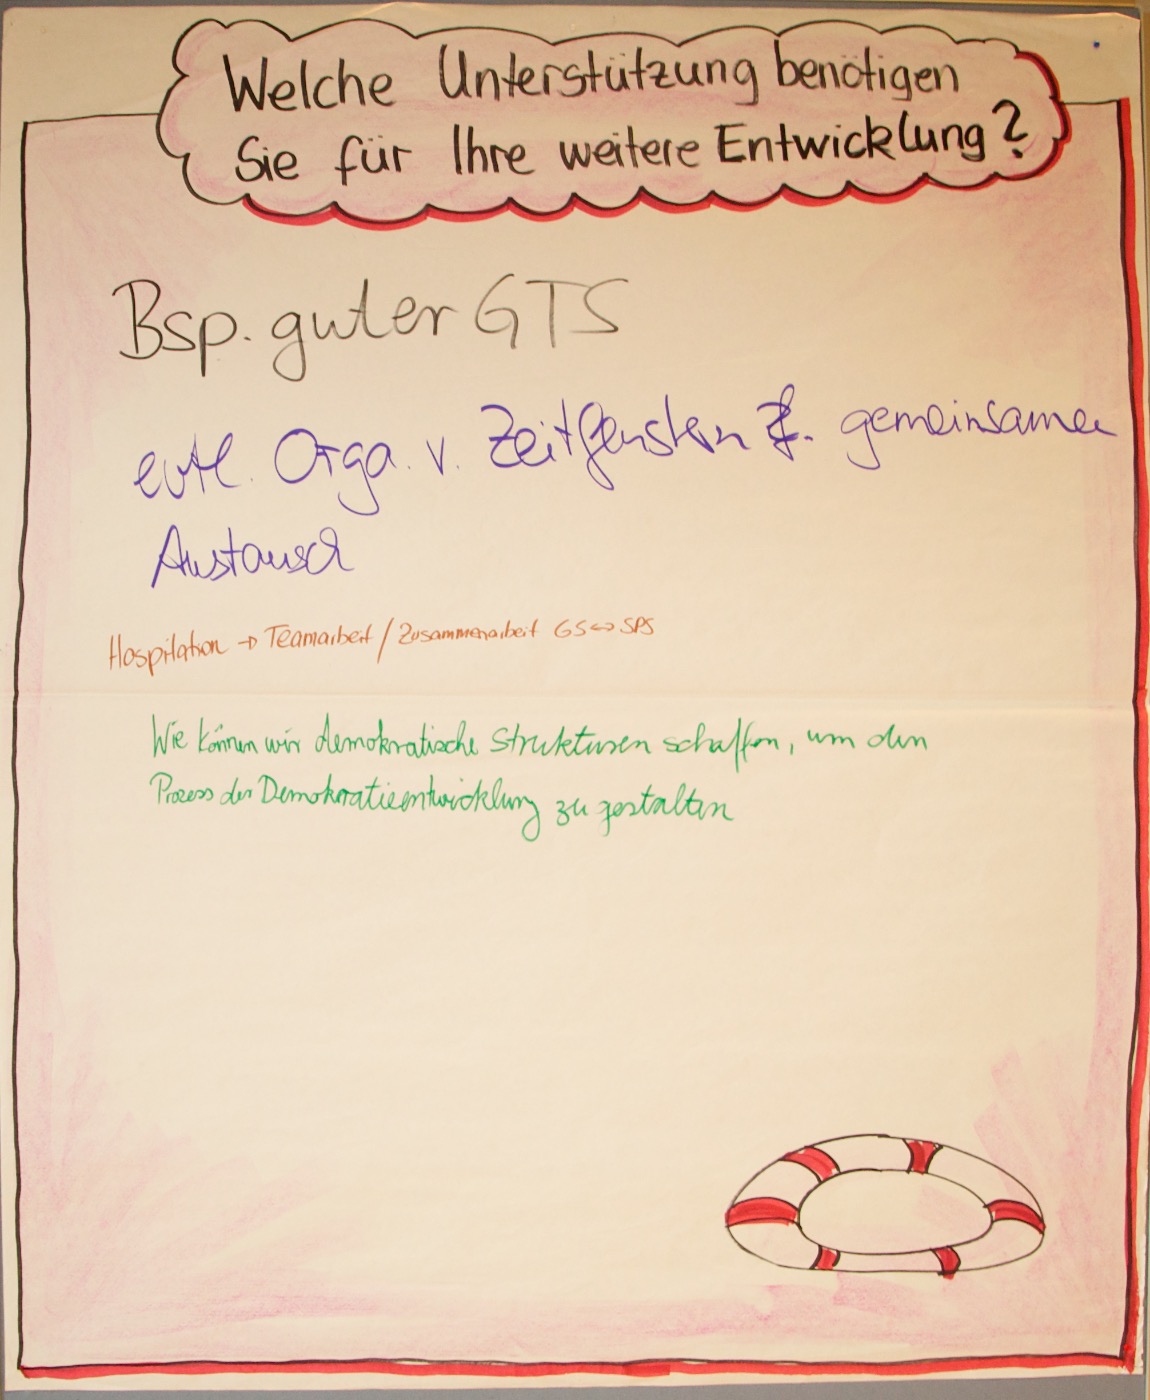 Welche Unterstützung benötigen
Sie für Ihre weitere Entwicklung?
Bsp. guter GTS
evtl. Orga. v. Zeitfenstern z. gemeinsamen
Austausch
Hospitation → Teamarbeit / Zusammenarbeit GS ↔ SPS
Wie können wir demokratische Strukturen schaffen, um den
Prozess der Demokratieentwicklung zu gestalten